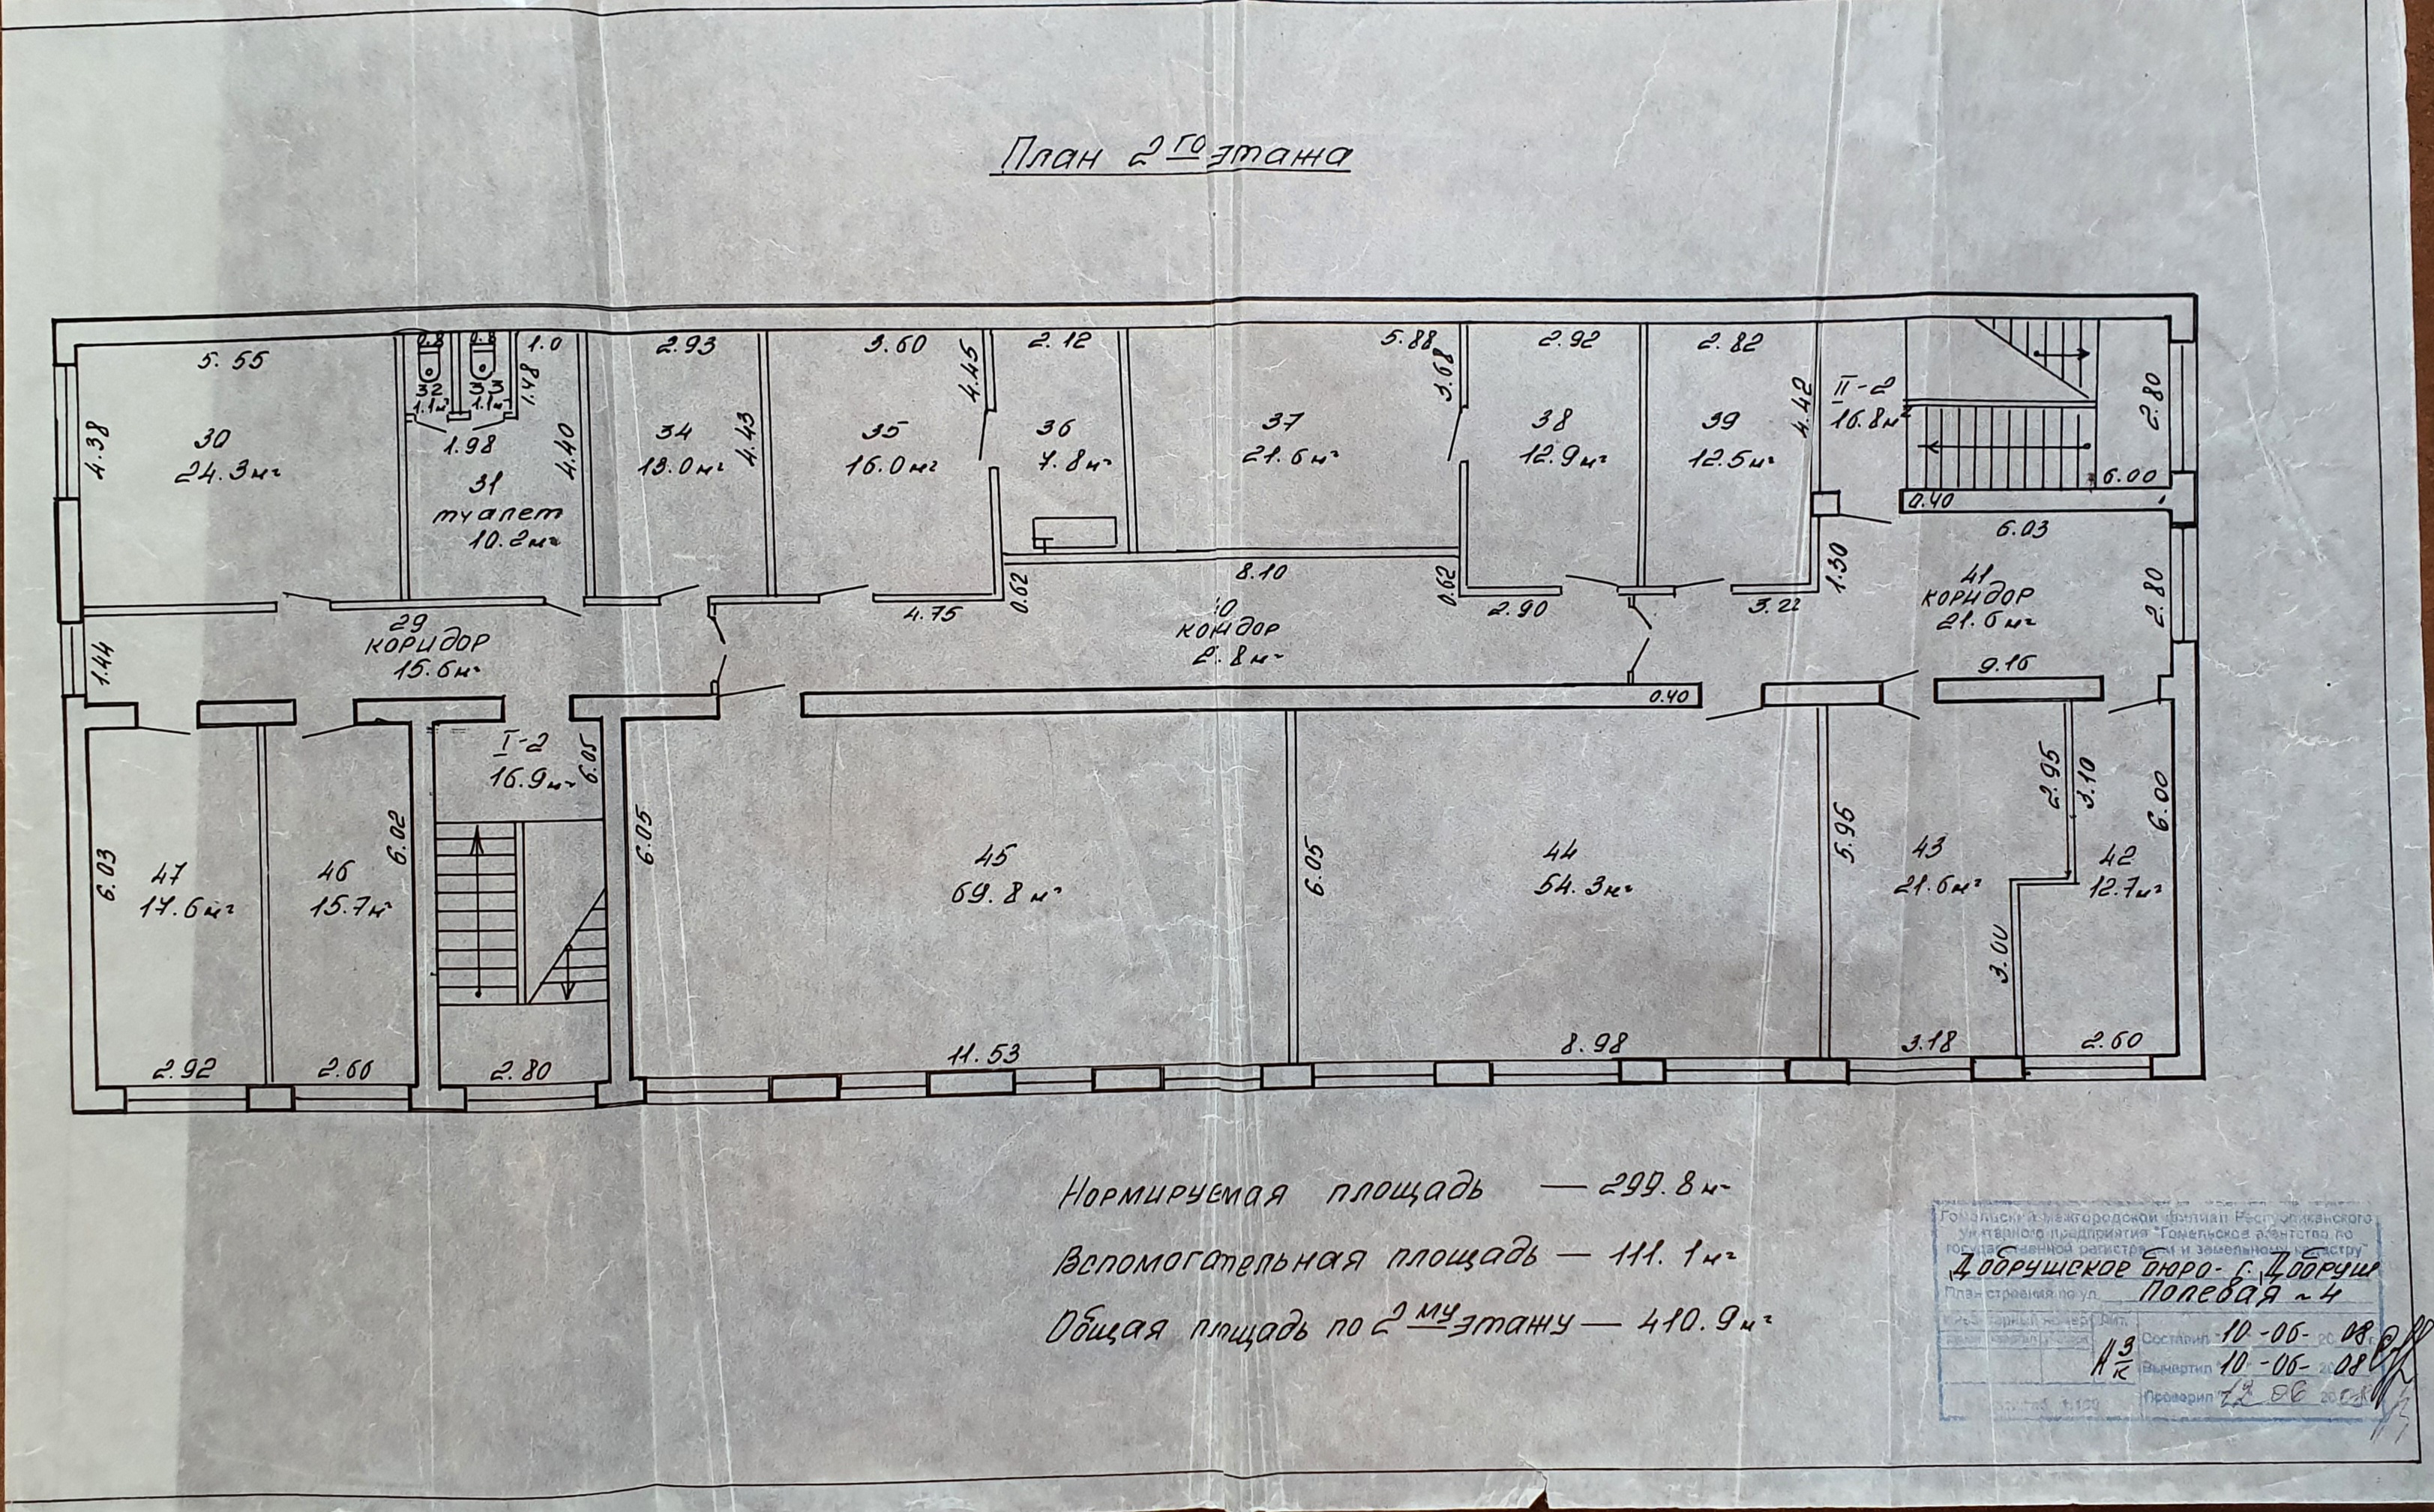 План 2го этажа
5.55
0.8
0.8
1.0
2.93
3.60
2.12
5.88
2.92
2.82
4.38
30
24.3м²
32
1.1м²
33
1.1м²
1.48
1.98
31
туалет
10.2м²
4.40
34
13.0м²
4.43
35
16.0м²
4.45
36
7.8м²
37
21.6м²
3.68
38
12.9м²
39
12.5м²
4.42
II-2
16.8м²
2.80
6.00
0.40
6.03
1.44
29
коридор
15.6м²
4.75
0.62
8.10
0.62
2.90
3.22
1.30
41
коридор
21.6м²
2.80
9.16
0.40
I-2
16.9м²
6.05
6.03
47
17.6м²
46
15.7м²
6.02
6.05
45
69.8м²
6.05
44
54.3м²
5.95
43
21.6м²
2.95
3.10
6.00
42
12.7м²
3.00
2.92
2.66
2.80
11.53
8.98
3.18
2.60
Нормируемая площадь — 299.8м²
Вспомогательная площадь — 111.1м²
Общая площадь по 2му этажу — 410.9м²
Гомельский межгородской филиал Республиканского
Унитарного предприятия "Гомельское агентство по
государственной регистрации и земельному кадастру"
Добрушское бюро- г. Добруш
План строения по ул. Полевая ~ 4
Составил 10-06- 2008г.
А 3/к
Вычертил 10-06- 2008
Проверил 12 06 2008